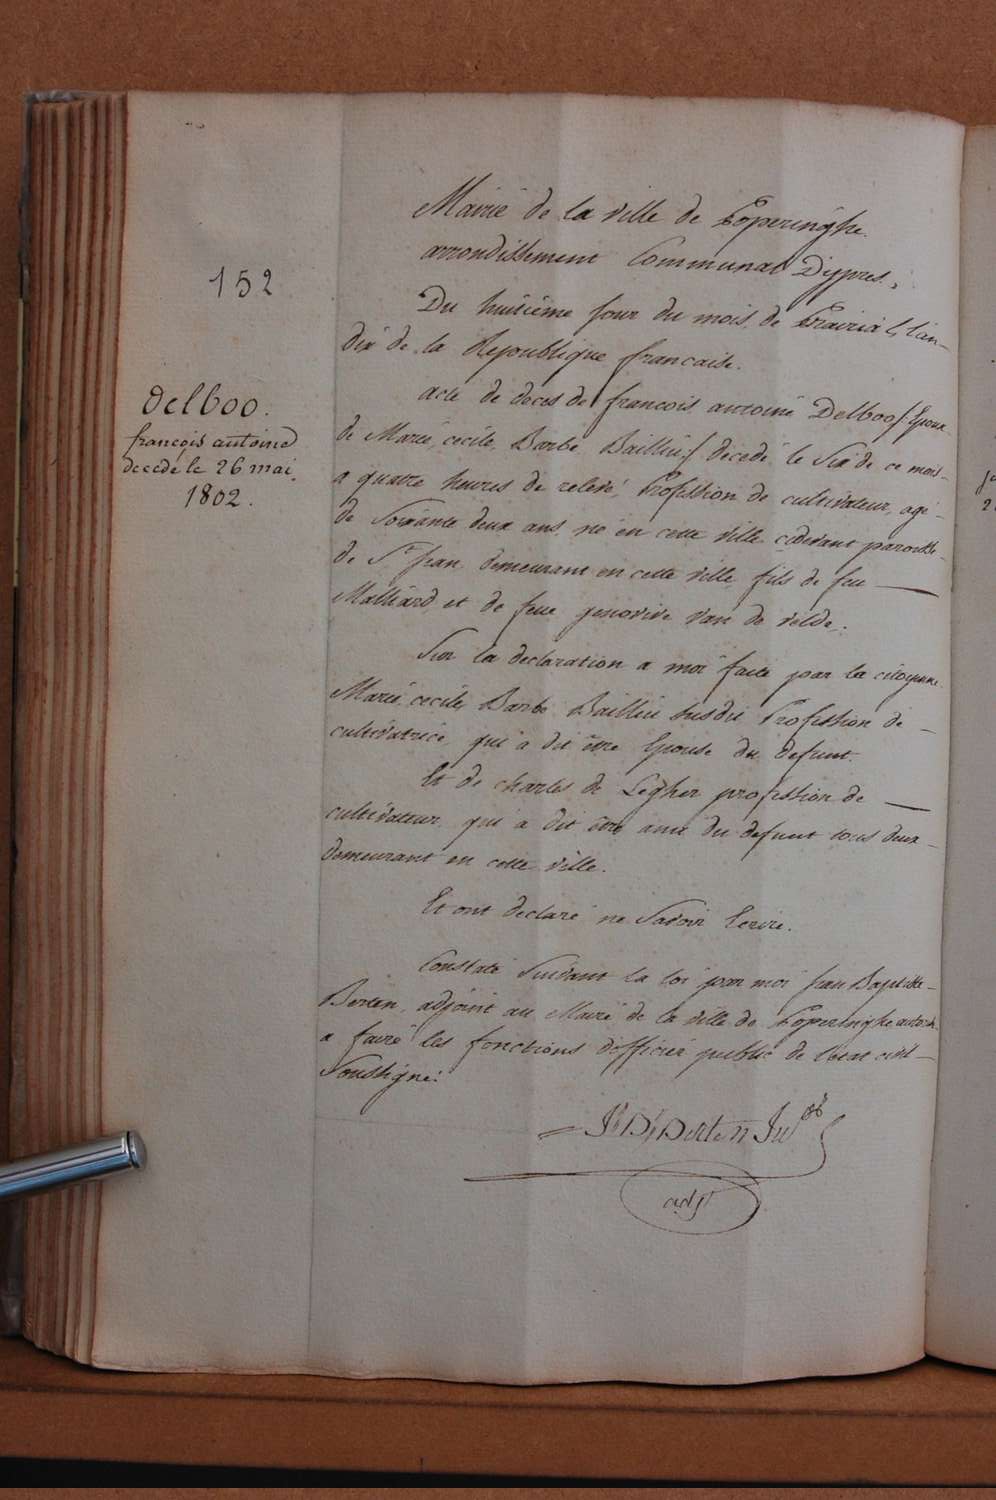 152
delboo.
françois antoine
decede le 26 mai
1802.
Mairie de la ville de Poperinghe.
arrondissement Communal D'ypres.,
Du huitième jour du mois de Prairial, l'an-
dix de la Republique francaise.
acte de deces de francois antoine Delboo /: Epoux
de Marie, cecile, Barbe Bailliu:/ décedé le Six de ce mois-
a quatre heures de relevé, Profession de cultivateur, agé-
de Soixante deux ans, né en cette ville cidevant paroisse-
de St. Jean demeurant en cette ville, fils de feu
Malliard et de feue genovive van de velde,.
Sur la declaration a moi faite par la citoyenne
Marie, cecile, Barbe Bailliu susdit Profession de -
cultivatrice, qui a dit être Epouse du defunt.
Et de charles de Legher profession de
cultivateur, qui a dit être ami du defunt tous deux-
demeurant en cette ville.
Et ont declaré ne Savoir Ecrire.
Constaté Suivant la loi par moi Jean Baptiste-
Berten, adjoint au Maire de la ville de Poperinghe autorisé
a faire les fonctions d'officier public de l'état civil-
Soussigné:
J: B: Berten
adjt